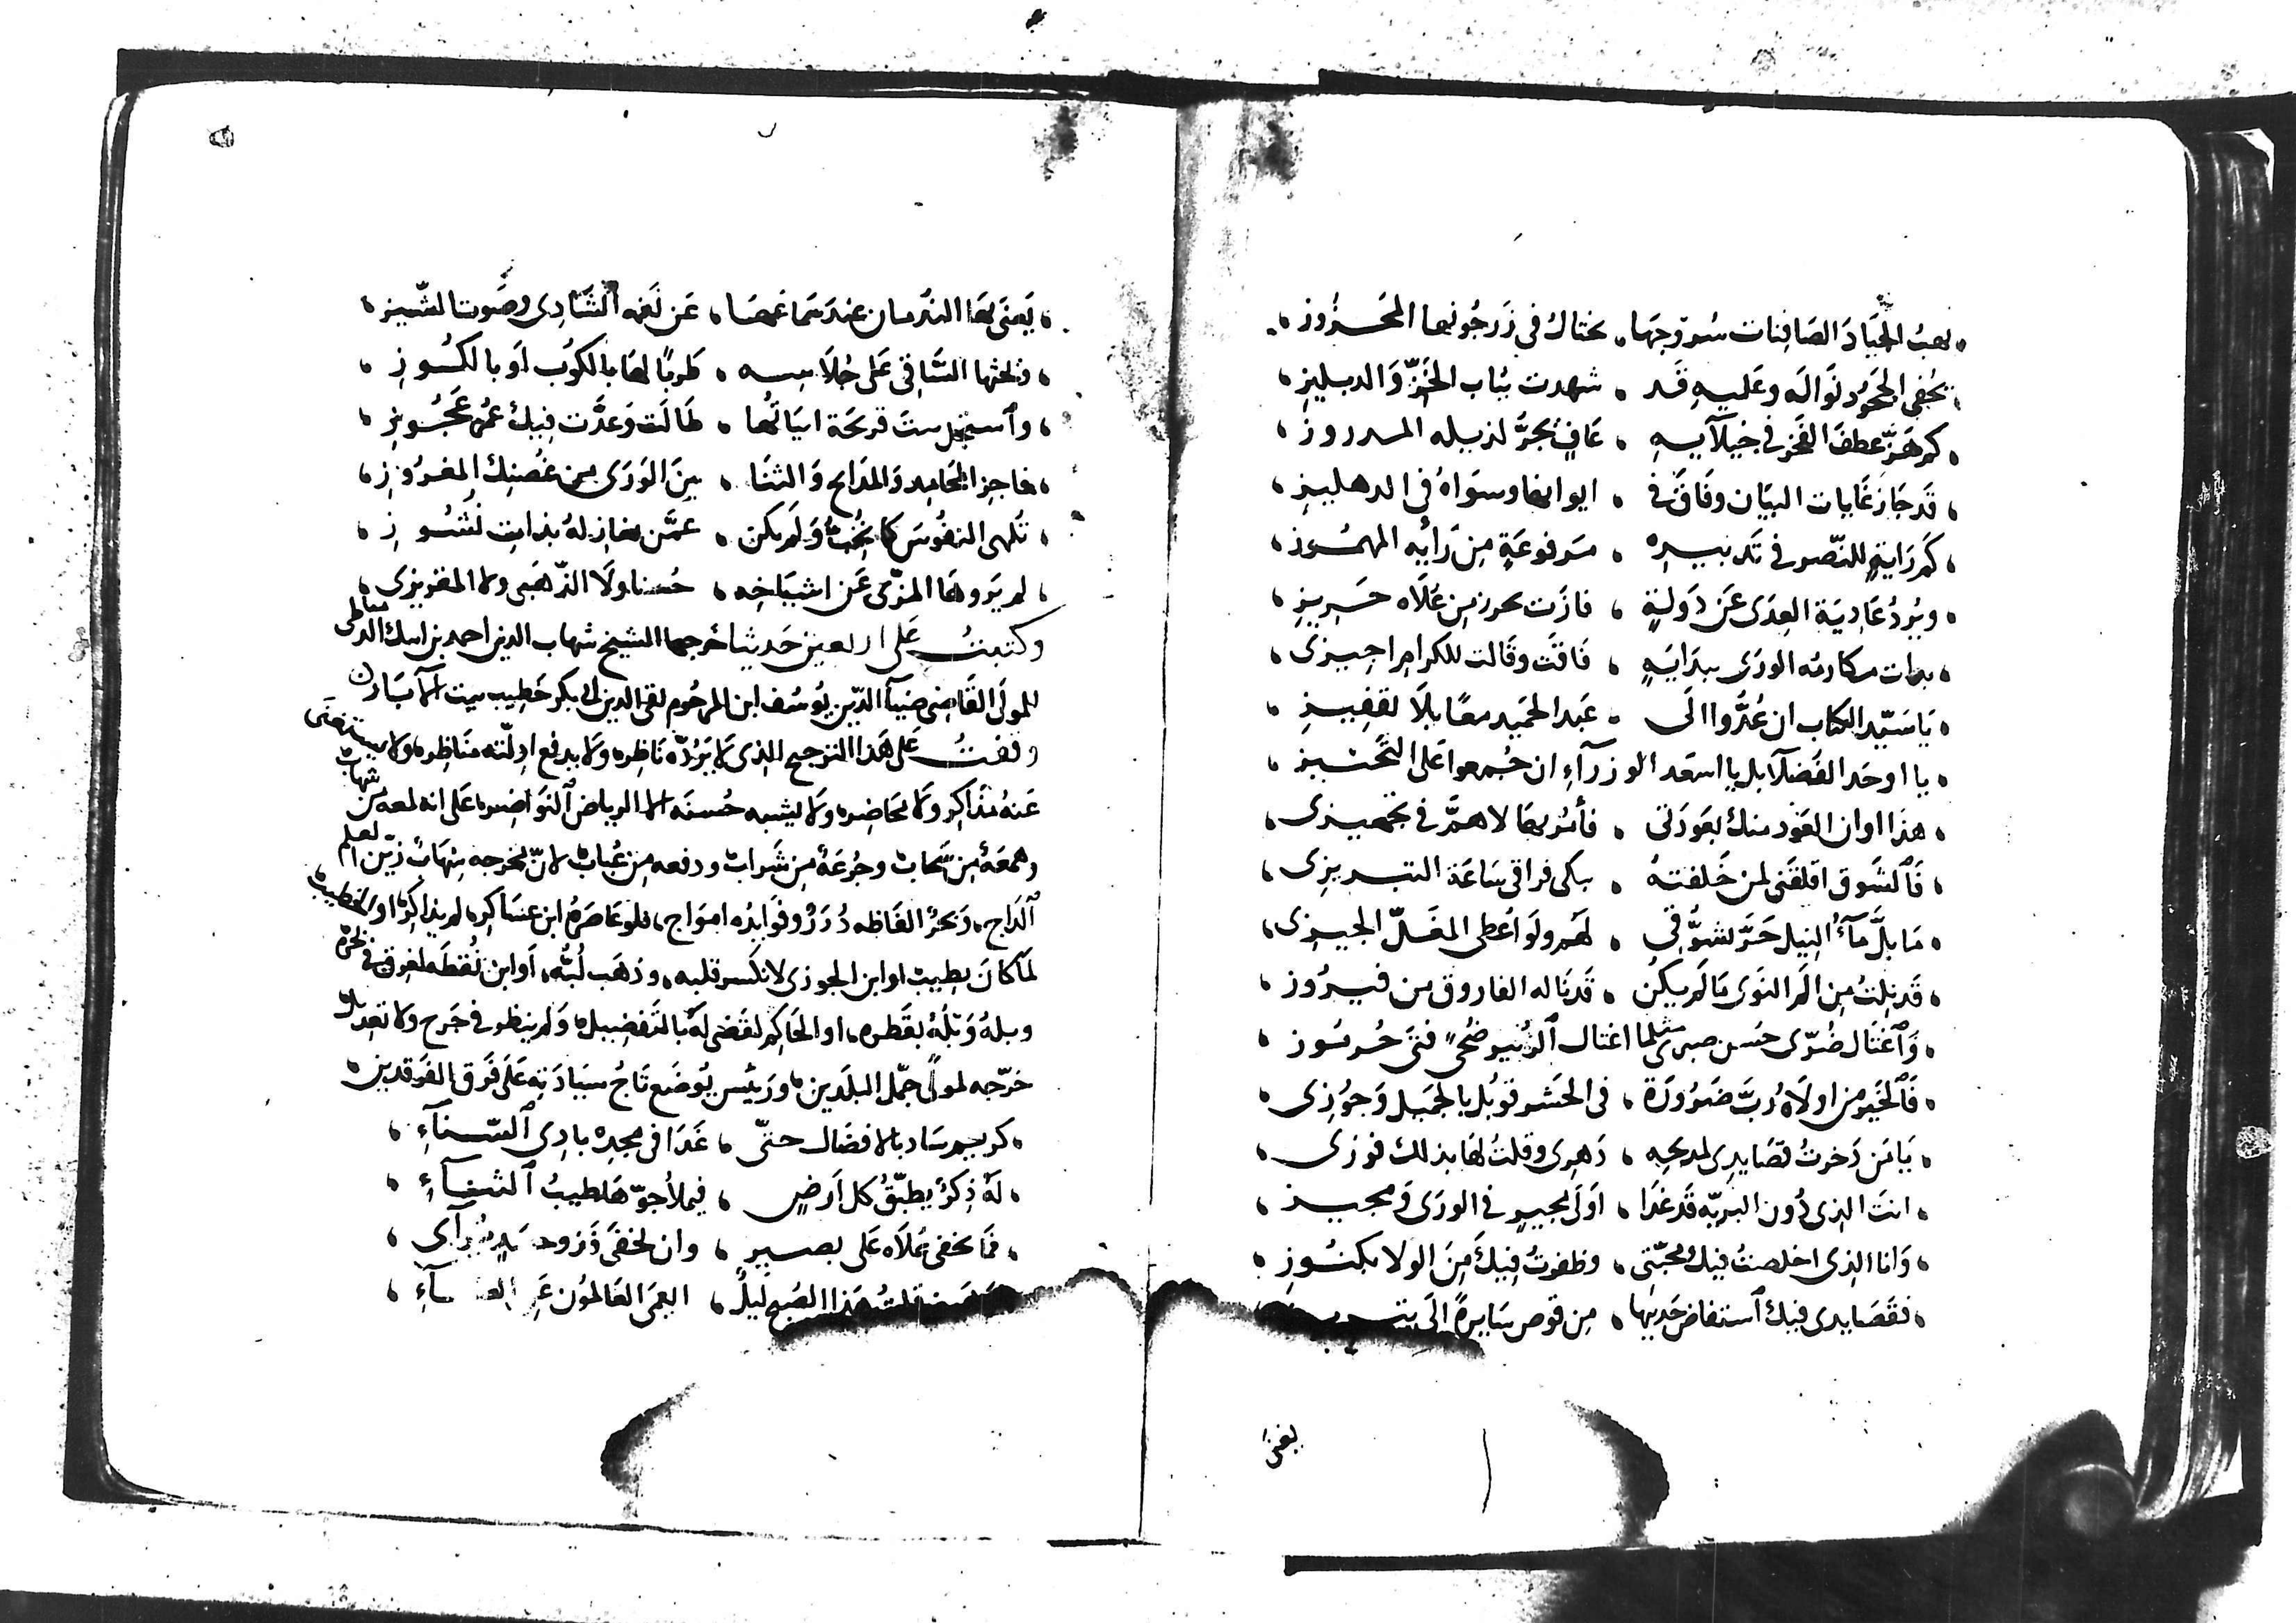 يهبُ الجيَادَ الصَافِنات سُروجهَا، تختالُ في زَرجُونها المَخرُوز،
يُخفي الجحُود نَوالَه وعَليهِ قَد، شهدت ثيَاب الخَزّ وَالدبليز،
كم هَزّ عطفَ الفخر في خيلآيهِ، عَافٍ يجرُّ لذيله المدروز،
قَد جَازَ غَايات البيَان وفَاقَ في، ايوانها وسوَاهُ في الدهليز،
كَم رَايةٍ للنّصر في تَدبيرهِ، مَرفوعَةٍ مِن رَأيِه المهمُوز،
ويرُدُّ عَادِيَة العِدَى عَن دَولةٍ، فازَت بحرزٍ من عُلَاه حَريزِ،
بهرَت مكارمُه الورَى ببدَايهٍ، فَاقَت وقَالت للكرامِ اجيزى،
يَا سَيّد الكتاب ان عُدُّوا الَى، عَبد الحميد معًا بلَا تقفيزِ،
يا اوحَد الفُضَلآ بل يا اسعَد الوزرآءِ ان جُمعوا عَلى التَّحييز،
هذا اوان العَود منك بعَودَتى، فأمُر بهَا لا همَّ في تجهيزى،
فَالشَوق اقلقَني لمن خَلفتهُ، يبكى فراقى سَاعَة التبريزى،
مَا بلَّ مَآءُ النيل حَرَّ تشوُّقى، لهُم ولَو اُعطى المغَلّ الجيزى،
قَد نِلتُ مِن الَم النوَى مَا لَم يكُن، قَد نَاله الفاروق من فيرُوز،
وَاغتَال ضُرّى حُسن صبرى مثلما اغتال الزُبَير ضُحًى فتَى جُرمُوز،
فَالخَير من اولَاهُ رُبَّ ضَرُورَة، في الحَشر قوبُل بالجميل وَجوُزى،
يَا مَن ذَخرتُ قصَايدى لمديحِه، دَهرى وقلتُ لهَا بذلك فوزى،
انتَ الذى دُون البريّه قَد غَدَا، اَولى مجيرٍ في الورَى ومجيز،
وَانا الذى اخلصتُ فيك محَبّتى، وظفرتُ فيكَ مِنَ الولا بكنُوزِ،
فقَصَايدى فيك استفاض حَديثها، مِن قوص سَايرةً الَى
يغنى
يَغنَى بهَا الندمان عند سَماعهَا، عَن نَغمه الشَّادى وصَوت الشّيز،
ويحثها السَّاقى عَلى جُلَّاسِه، طَربًا لهَا بالكُوب اَو بالكُوزِ،
واستجلِ بنتَ قريحَة ابيَاتُها، طَالَت وَعدَّت فيك عُمر عَجُوزِ،
فاجنِ المحَامِد وَالمدَايح وَالثنَا، بينَ الوَرَى من غُصنِك المغرُوزِ،
تُلهى النفُوسَ كما تُحبُّ وَلَم يكن، عمَّن يغازلهُ بذات نُشُوزِ،
لم يَروهَا المزّى عَن اشيَاخِه، حُسنا ولَا الذّهَبى ولا المقريزى،
وكتبتُ عَلى اربعين حَديثا خَرجها الشيخ شهاب الدين احمد بن ايبك الدمياطى
للمولَى القَاضى ضيآ الدّين يُوسُف ابن المرحُوم تقى الدين ابي بكر خَطِيب بيت الآبَار
وقفتُ عَلى هَذا التخريج الذى لَا يَرُدّه نَاظره ولا يدفع ادِلّته منَاظره ولا يستغنى
عَنهُ مُذَاكِر ولَا محَاضره ولَا يشبه حُسنَه الا الرياض النوَاضره عَلى انه لمعه من شهاب
وهمعَةٌ من سَحاب وجُرعَةٌ مِن شَراب ودفعه مِن عُبَاب لانّ مخرجه شِهَابٌ زيّن العلم
الدَاج، وَبَحرٌ الفَاظه دُرَرٌ وفوَايدُه امواج، فلو عَاصَرهُ ابن عسَاكِر، لم يذاكره او الخطيب
لمَا كانَ يطيب او ابن الجوزى لانكسر قلبه، وذهَب لُبّه، اَو ابن نُقطَه لغرق في بحره
وبلهُ وَبْلُهُ بقَطره، او الحَاكِم لقَضى لَهُ بالتَفضيل، وَلم ينظر في جَرح ولا تعدِيل
خرّجه لمولًى جمّل البلَدين، ورَئيس يُوضَع تَاجُ سيَادَته عَلَى فَرق الفَرقدين،
كريم سَاد بالافضَال حتّى، غَدَا فى مجدِه بادِى السّنآءِ،
لَهُ ذِكرٌ يطبّقُ كل اَرضٍ، فيملأ جوّهَا طيبُ الثنآءِ،
فمَا يخفى عُلَاه عَلى بصيرٍ، وان يخفَى فَذو حَسدٍ يُرآى،
وَهَبنى قلتُ هَذا الصُبح لَيلٌ، ايَعمَى العَالمُون عَنِ الضيآءِ،